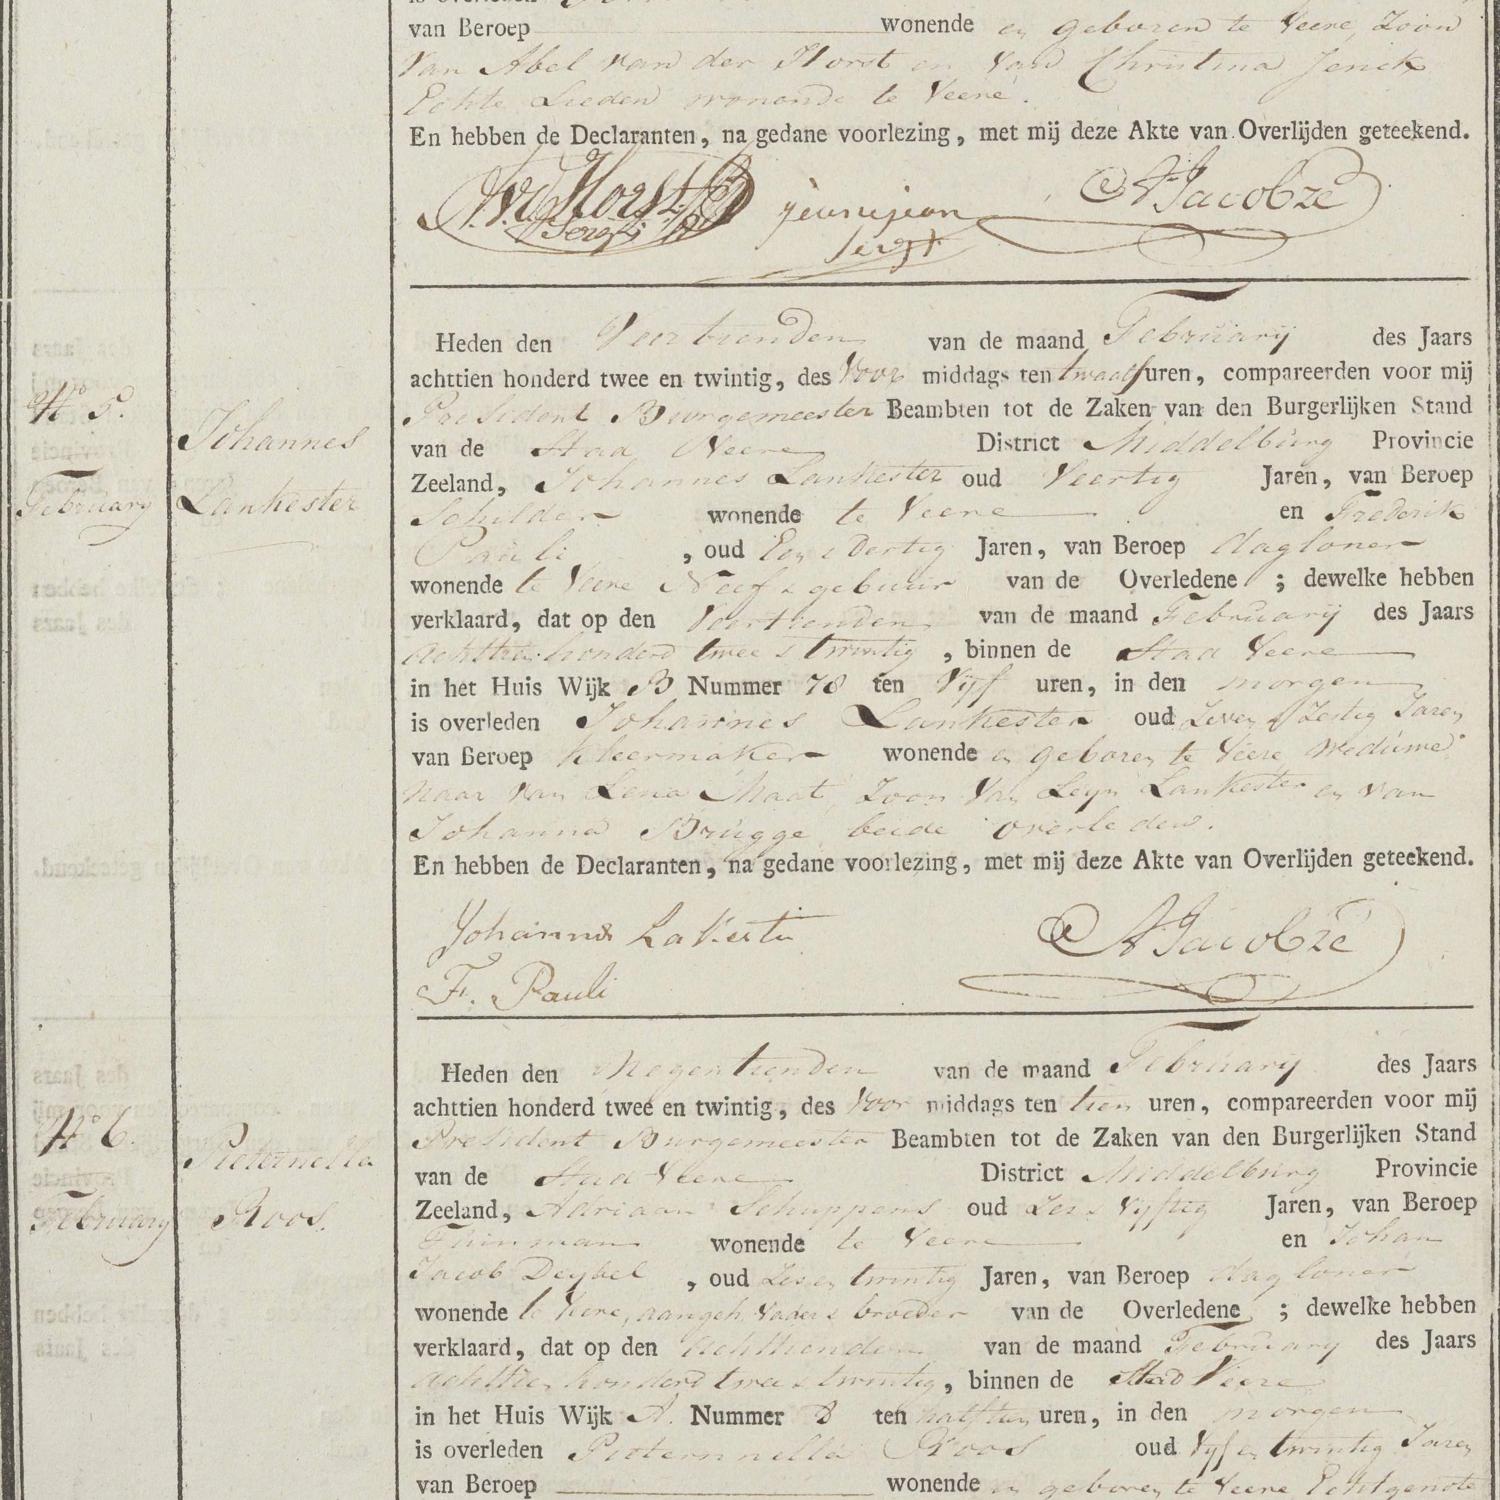 van Beroep wonende en geboren te Veere, Zoon
van Abel van der Horst en van Christina Jenik
Echte Lieden wonende te Veere.
En hebben de Declaranten, na gedane voorlezing, met mij deze Akte van Overlijden geteekend.
AJacobze
Heden den Veertienden van de maand February des Jaars
achttien honderd twee en twintig, des Voor middags ten twaalf uren, compareerden voor mij
President Burgemeester Beambten tot de Zaken van den Burgerlijken Stand
van de Stad Veere District Middelburg Provincie
Zeeland, Johannes Lankester oud Veertig Jaren, van Beroep
Schilder wonende te Veere en Frederik
Pauli, oud Een & Dertig Jaren, van Beroep dagloner
wonende te Veere Neef & gebuur van de Overledene ; dewelke hebben
verklaard, dat op den Veertienden van de maand February des Jaars
achttien honderd twee & twintig, binnen de Stad Veere
in het Huis Wijk B Nummer 78 ten Vijf uren, in den morgen
is overleden Johannes Lankester oud Zeven & Zestig Jaren
van Beroep Kleermaker wonende en geboren te Veere Weduwe
naar van Lena Maat, Zoon van Leyn Lankester en van
Johanna Brugge beide overleden.
En hebben de Declaranten, na gedane voorlezing, met mij deze Akte van Overlijden geteekend.
Johannes LaKester
AJacobze
F. Pauli
No 5.
February
Johannes
Lankester
Heden den Negentienden van de maand February des Jaars
achttien honderd twee en twintig, des Voor middags ten tien uren, compareerden voor mij
President Burgemeester Beambten tot de Zaken van den Burgerlijken Stand
van de Stad Veere District Middelburg Provincie
Zeeland, Adriaan Schuppens oud Zes & Vyftig Jaren, van Beroep
wonende te Veere en Johan
Jacob Deybel, oud Zes en twintig Jaren, van Beroep dagloner
wonende te Veere, aangeh. Vader & broeder van de Overledene ; dewelke hebben
verklaard, dat op den achttienden van de maand February des Jaars
achttien honderd twee & twintig, binnen de Stad Veere
in het Huis Wijk A. Nummer 8 ten half tien uren, in den morgen
is overleden Pieternnella Roos oud Vyf en twintig Jaren
van Beroep wonende en geboren te Veere Echtgenote
No 6.
February
Pieternella
Roos.